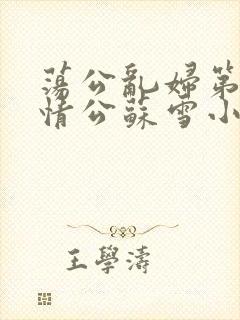 蕩公亂婦第
情公蘇雪小
王學濤